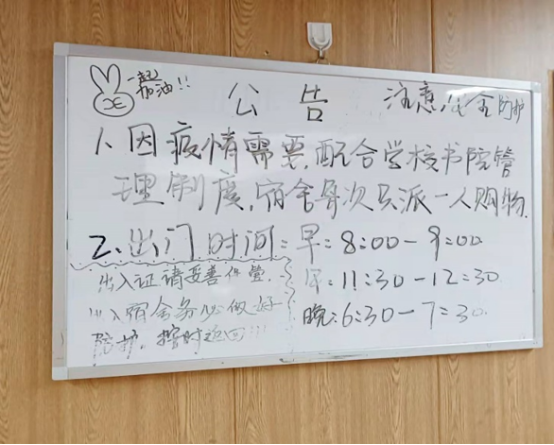 一起
加油!!
公告
注意安全防护
1、因疫情需要,配合学校书院管
理制度,宿舍每次只派一人购物.
2、出门时间:早:8:00-9:00
午:11:30-12:30
晚:6:30-7:30
出入证请妥善保管.
出入宿舍务必做好
防护,按时返回!!!